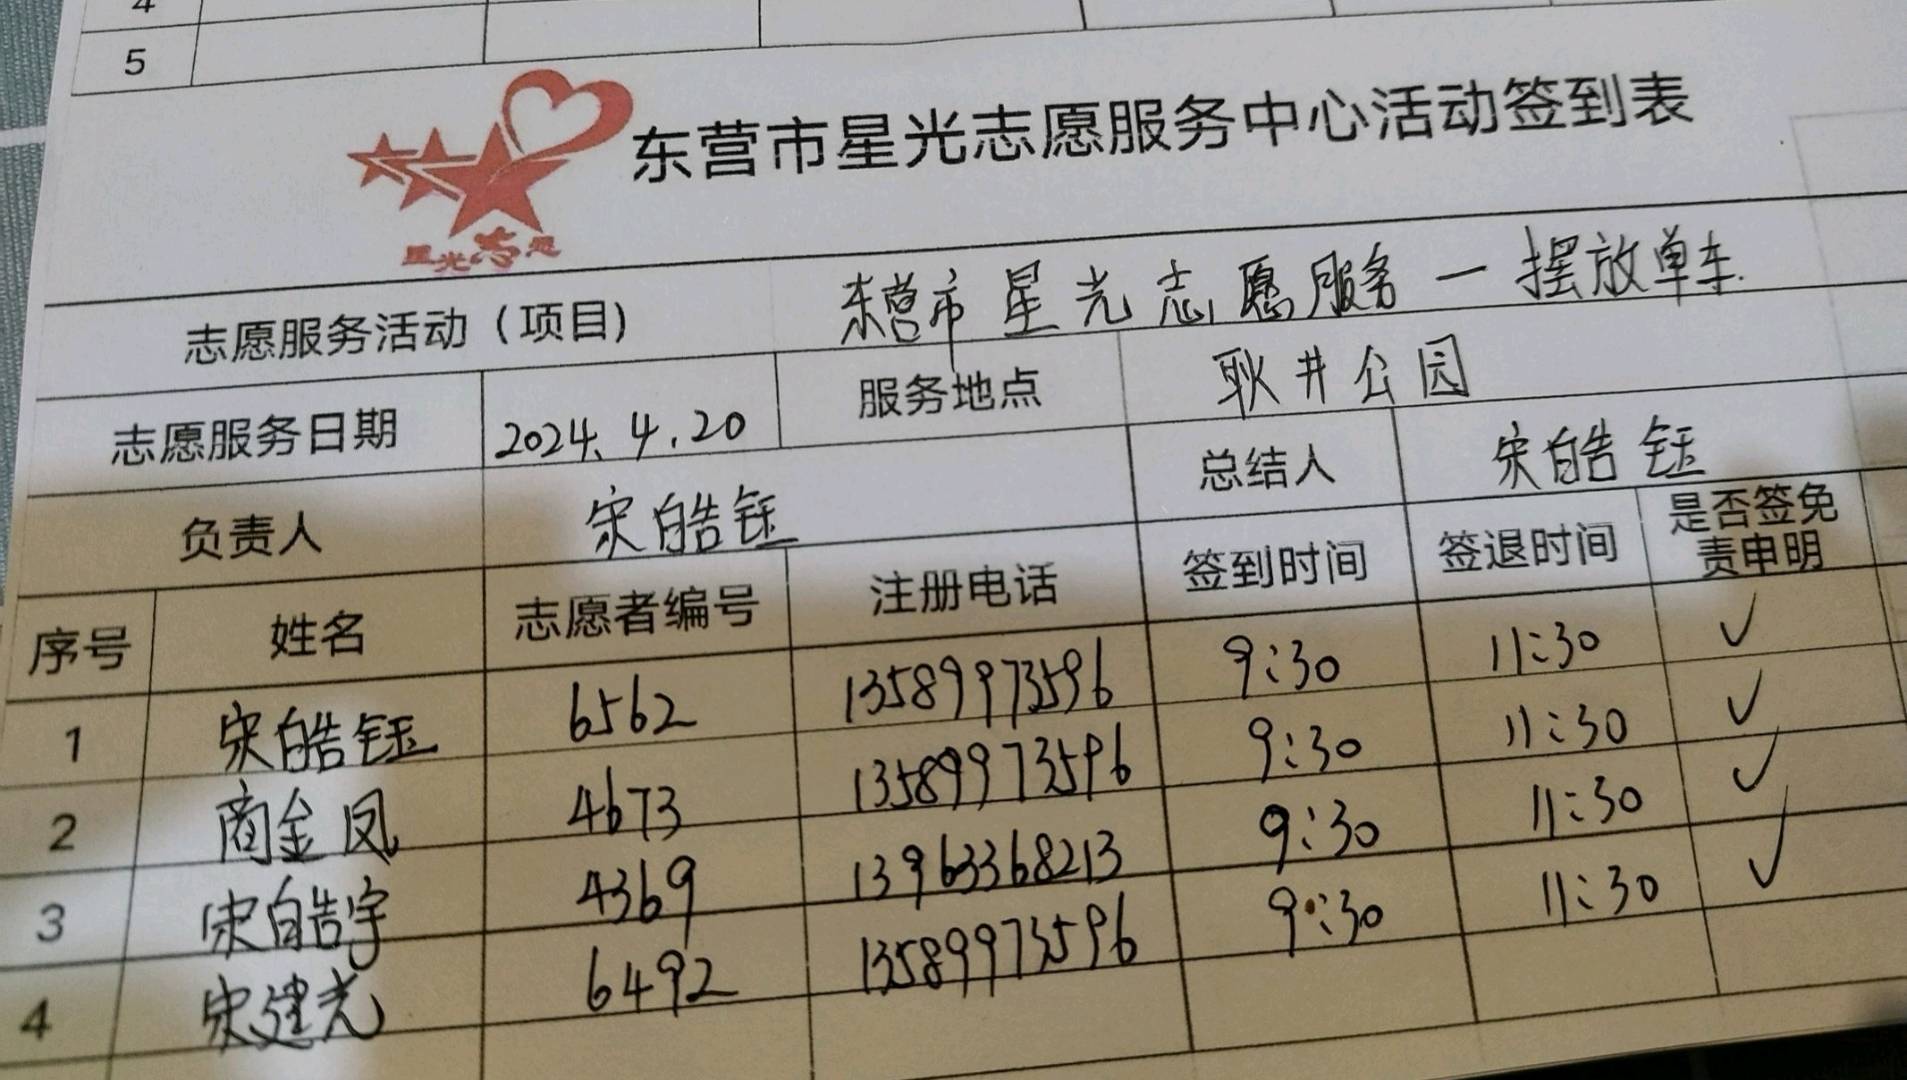 4
5
东营市星光志愿服务中心活动签到表
星光志愿
志愿服务活动（项目） 东营市星光志愿服务一摆放单车
志愿服务日期 2024.4.20 服务地点 耿井公园
负责人 宋皓钰 总结人 宋皓钰
序号 姓名 志愿者编号 注册电话 签到时间 签退时间 是否签免责申明
1 宋皓钰 6562 13589973596 9:30 11:30 ✓
2 商金凤 4673 13589973596 9:30 11:30 ✓
3 宋皓宇 4369 13963368213 9:30 11:30 ✓
4 宋建光 6492 13589973596 9:30 11:30 ✓